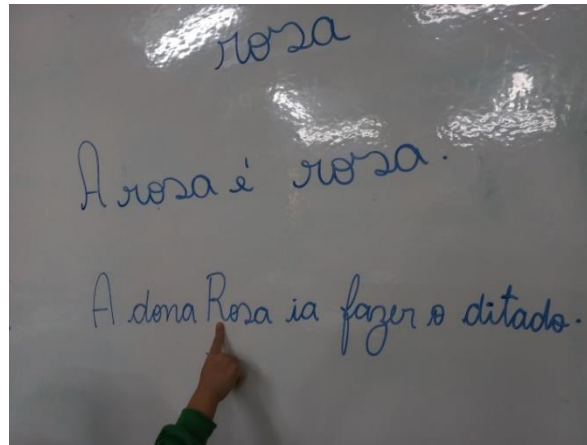 rosa
A rosa é rosa.
A dona Rosa ia fazer o ditado.